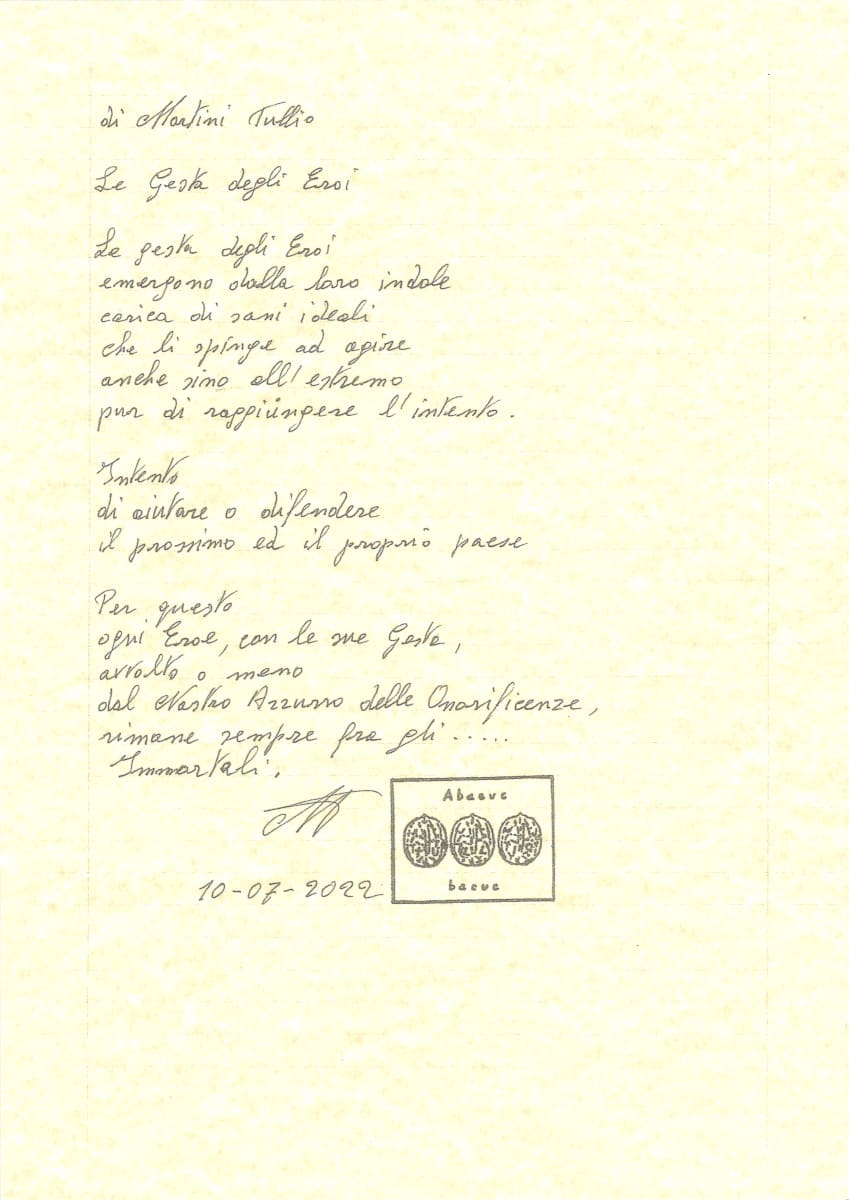 di Martini Tullio
Le Gesta degli Eroi
Le gesta degli Eroi
emergono dalla loro indole
carica di sani ideali
che li spinge ad agire
anche sino all'estremo
pur di raggiungere l'intento.
Intento
di aiutare o difendere
il prossimo ed il proprio paese
Per questo
ogni Eroe, con le sue Gesta,
avvolto o meno
dal Nastro Azzurro delle Onorificenze,
rimane sempre fra gli .....
Immortali.
Abaeue
baeue
10-07-2022